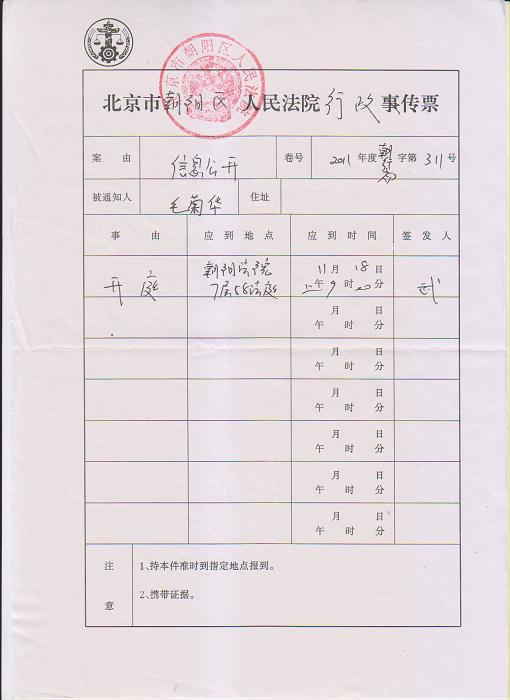 北京市朝阳区人民法院
北京市朝阳区人民法院行政事传票
案由 信息公开 卷号 2011年度朝行初字第311号
被通知人 毛菊华 住址
事由 应到地点 应到时间 签发人
开庭 朝阳法院 11月18日
7层58法庭 上午9时20分 武
月 日
午 时 分
月 日
午 时 分
月 日
午 时 分
月 日
午 时 分
月 日
午 时 分
月 日
午 时 分
注意
1、持本件准时到指定地点报到。
2、携带证据。